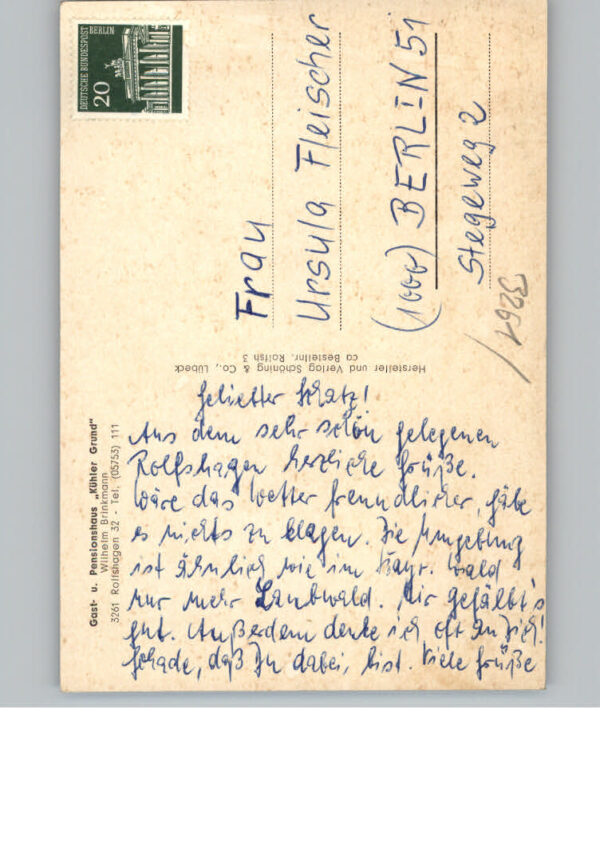 Gast- u. Pensionshaus „Kühler Grund“
Wilhelm Brinkmann
3261 Rolfshagen 32 - Tel. (05753) 111
Geliebter Schatz!
Aus dem sehr schön gelegenen
Rolfshagen herzliche Grüße.
Wäre das Wetter freundlicher, gäbe
es nichts zu klagen. Die Umgebung
ist ähnlich wie im Bayr. Wald
nur mehr Laubwald. Mir gefällt's
gut. Außerdem denke ich oft an Dich!
Schade, daß Du dabei bist. Viele Grüße
Hersteller und Verlag Schöning & Co., Lübeck
ca Bestellnr. Rolfsh 3
DEUTSCHE BUNDESPOST
BERLIN
20
Frau
Ursula Fleischer
(1000) BERLIN 51
Stegeweg 2
3261